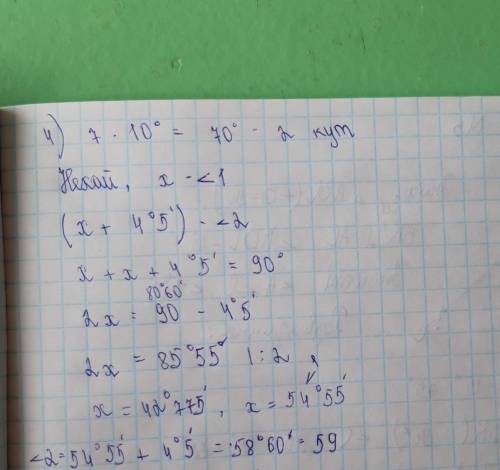 4) 7 · 10° = 70° - 2 кут
Нехай, x - <1
(x + 4°5') - <2
x + x + 4°5' = 90°
80°60'
2x = 90 - 4°5'
2x = 85°55' | : 2
x = 42°775', x = 54°55'
<2 = 54°55' + 4°5' = 58°60' = 59